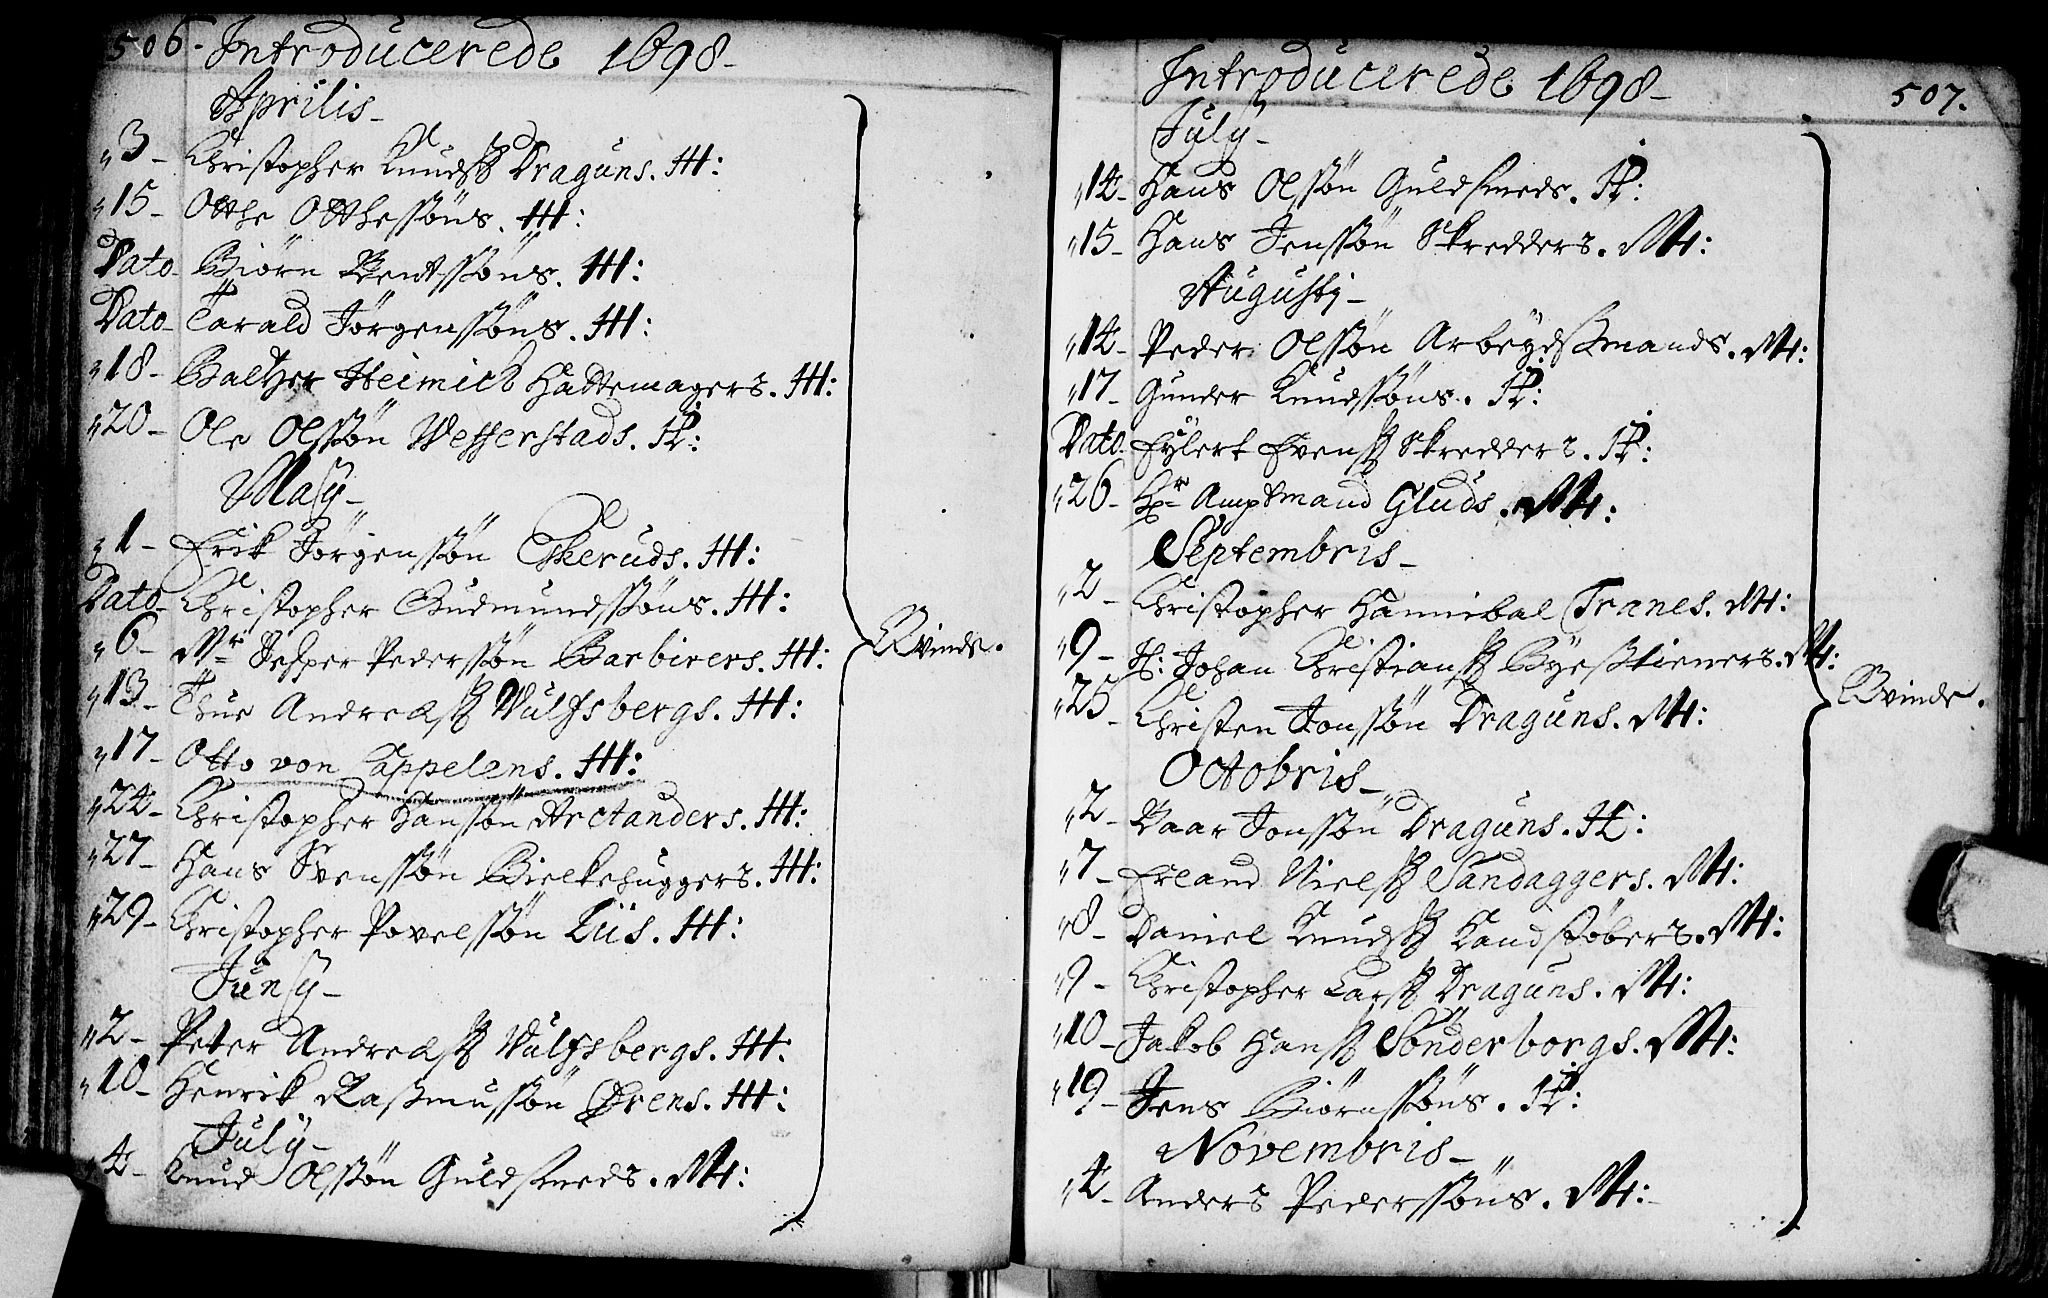 506. Introducerede 1698.
Aprilis
"3 Christopher Knudss: Draguns. H:
"15 Otthe Otthessøns. H:
Dato Biørn Bentssøns. H:
Dato Tarald Jørgenssøns. H:
"18 Baltzer Heimich Hattemagers. H:
"20 Ole Olssøn Westerstads.
Maÿ
"1 Erik Jørgenssøn Eskeruds. H:
Dato Christopher Gudmundssøns. H:
"6 Mr Jesper Pederssøn Barbirers. H:
"13 Thue Andreæss: Wulfsbergs. H:
"17 Otto von Cappelens. H:
"24 Christopher Hanssøn Arctanders. H:
"27 Hans Svenssøn Bielkehuggers. H:
"29 Christopher Povelssøn Liis. H:
Junÿ
"2 Peter Andreæss: Wulfsbergs. H:
"10 Henrik Rasmussøn Ørens. H:
Julÿ
"4 Knud Olssøn Guldsmeds. M:
Kvinde.
Introducerede 1698 507.
Julÿ
"14 Hans Olssøn Guldsmeds.
"15 Hans Jenssøn Skredders. M:
Augustj
"14 Peder Olssøn Arbeÿdsmands. M:
"17 Gunder Knudssøns.
Dato Eÿlert Evenss: Skredders.
"26 Hr Amptmand Gluds. M:
Septembris
"2 Christopher Hannibal Tranes. M:
"9 H: Johan Christianss: Bÿestieners. M:
"25 Christen Jonssøn Draguns. M:
Octobris
"2 Baar Jonssøn Draguns.
"7 Erland Nielss: Sandaggers. M:
"8 Daniel Knudss: Kandstøbers. M:
"9 Christopher Larss: Draguns. M:
"10 Jakob Hanss: Sønderborgs. M:
"19 Jens Biørnssøns.
Novembris
"4 Anders Pederssøns. M:
Kvinde.